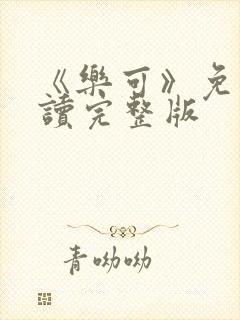 《樂可》免
讀完整版
青呦呦